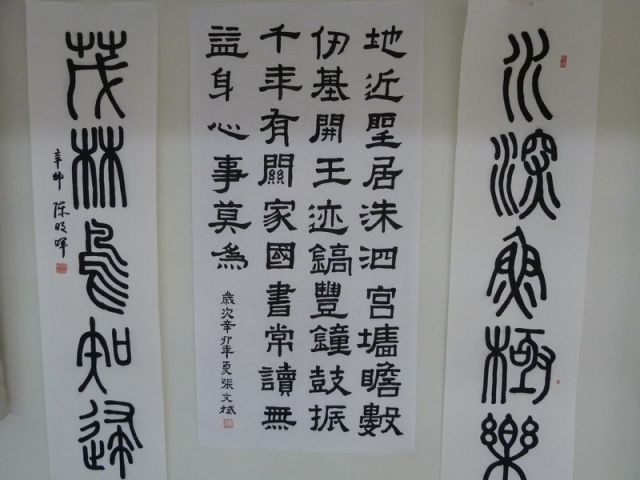 水深魚極樂
地近聖居洙泗宫墻瞻數
仞基開王迹鎬豐鐘鼓振
千年有關家國書常讀無
益身心事莫為
歲次辛卯年夏張文斌
茂林鳥知歸
辛卯 陈明暉